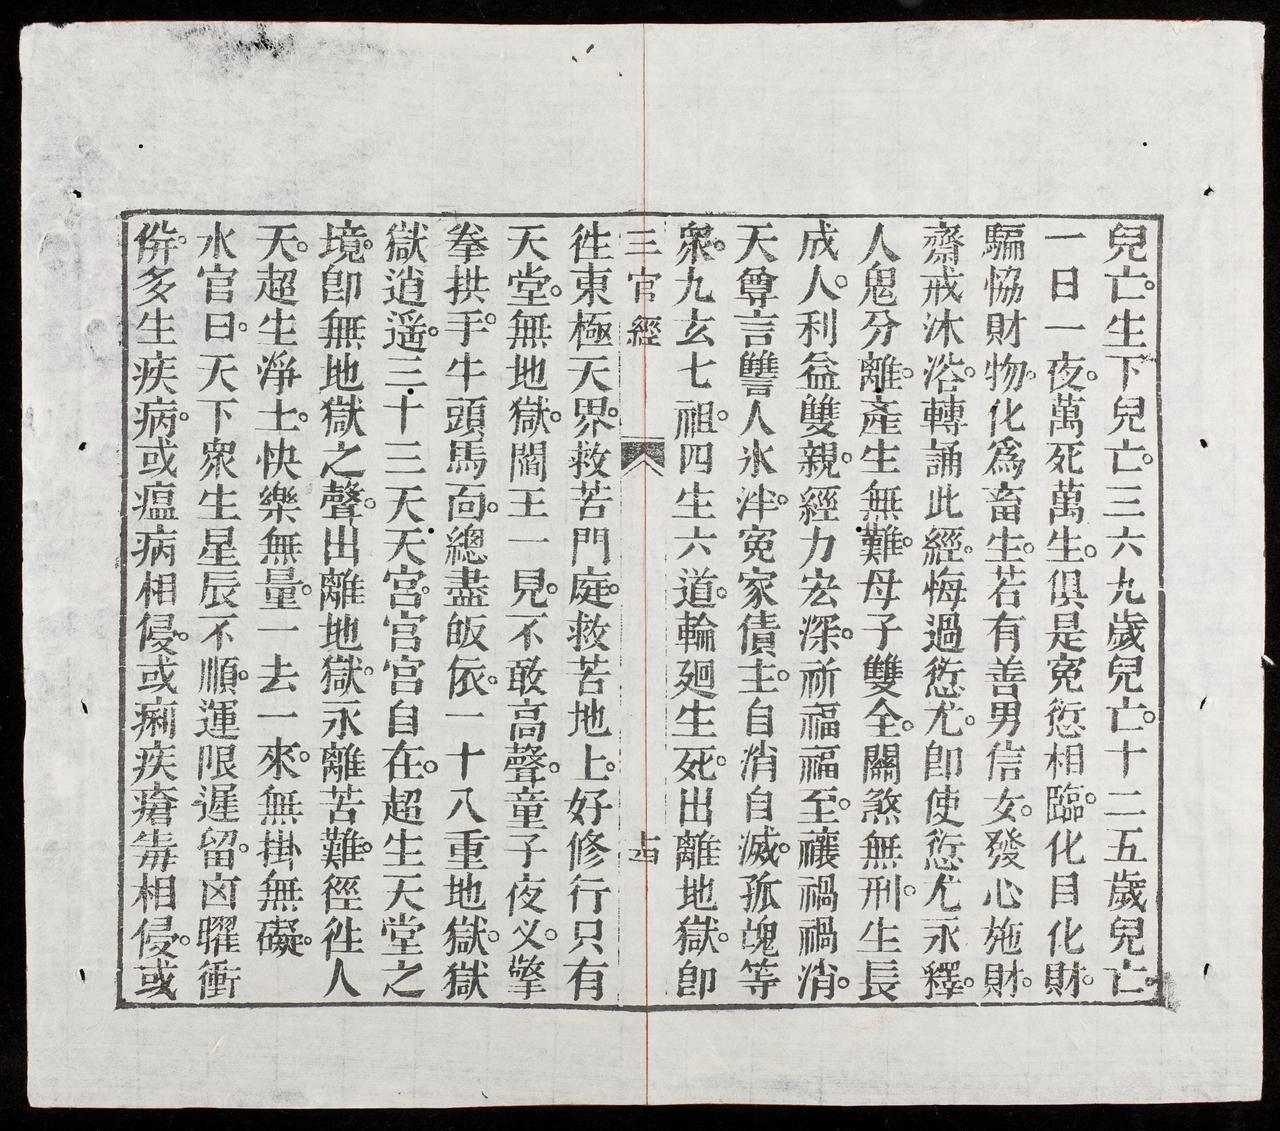 兒亡。生下兒亡。三六九歲兒亡。十二五歲兒亡。
一日一夜。萬死萬生。俱是寃愆相臨。化目化財。
騙協財物。化爲畜生。若有善男信女。發心施財。
齋戒沐浴。轉誦此經。悔過愆尤。卽使愆尤永釋。
人鬼分離。產生無難。母子雙全。關煞無刑。生長
成人。利益雙親。經力宏深。祈福福至。禳禍禍消。
天尊言讐人氷泮。寃家債主。自消自滅。孤魂等
衆。九玄七祖。四生六道。輪廻生死。出離地獄。卽
三官經
徃東極天界。救苦門庭。救苦地上。好修行只有
天堂。無地獄。閻王一見。不敢高聲。童子夜义。擎
拳拱手。牛頭馬面。總盡皈依。一十八重地獄。獄
獄逍遥。三十三天天宮。宮宮自在。超生天堂之
境。卽無地獄之聲。出離地獄。永離苦難。徑徃人
天。超生淨土。快樂無量。一去一來。無掛無礙。
水官曰。天下衆生星辰不順。運限遲留。凶曜衝
併。多生疾病。或瘟病相侵。或痢疾瘡毒相侵。或